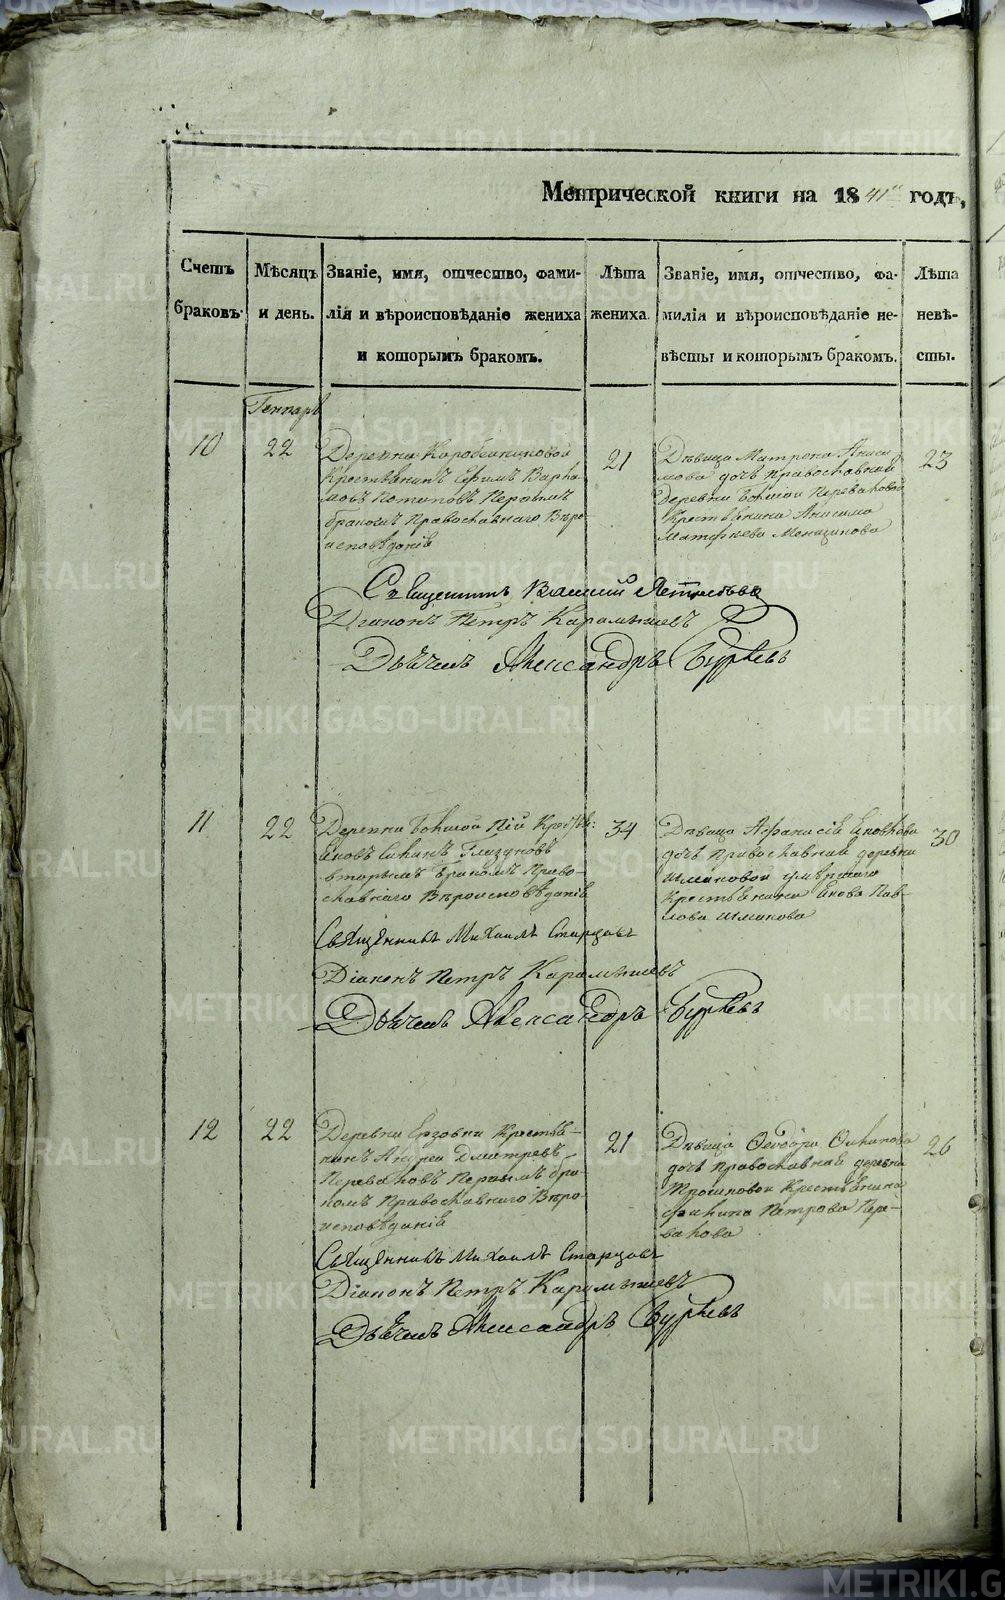 Метрической книги на 1841й годъ,
Счетъ браковъ.
Мѣсяцъ и день.
Званіе, имя, отчество, фамилія и вѣроисповѣданіе жениха и которымъ бракомъ.
Лѣта жениха.
Званіе, имя, отчество, фамилія и вѣроисповѣданіе невѣсты и которымъ бракомъ.
Лѣта невѣсты.
Генварь
10
22
Деревни Коробейниковой
Крестьянинъ Ефимъ Варла-
мовъ Потаповъ Первымъ
бракомъ Православнаго Вѣро-
исповѣданія
21
Дѣвица Матрона Аниси-
мова дочь православная
деревни
Крестьянина Анисима
Матфѣева
23
Священникъ Василий
Діаконъ Петръ Карамышевъ
Дьячекъ Александръ
11
22
Деревни Крестья-
Глазуновъ
вторымъ Бракомъ Право-
славнаго Вѣроисповѣданія
34
Дѣвица Афанасія
дочь православная деревни
умершаго
Крестьянина Пав-
лова
30
Священникъ Михаилъ Старцовъ
Діаконъ Петръ Карамышевъ
Дьячекъ Александръ
12
22
Деревни Ерзовки Крестья-
нинъ Андрей Дмитревъ
Переваловъ Первымъ бра-
комъ Православнаго Вѣро-
исповѣданія
21
Дѣвица Ѳеодора
дочь православная деревни
Крестьянина
Петрова Пере-
валова
26
Священникъ Михаилъ Старцовъ
Діаконъ Петръ Карамышевъ
Дьячекъ Александръ
METRIKI.GASO-URAL.RU